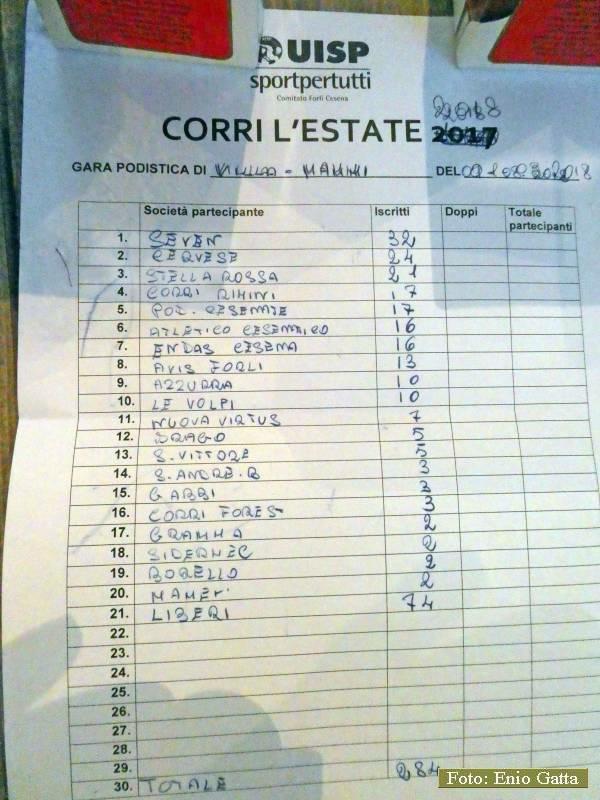 UISP
sportpertutti
Comitato Forlì Cesena
CORRI L'ESTATE 2017 2018
GARA PODISTICA DI VILLA - MANNI DEL
Società partecipante Iscritti Doppi Totale partecipanti
1. SEVEN 32
2. CERVESE 24
3. STELLA ROSSA 21
4. CORRI RIMINI 17
5. POL. CESENATE 17
6. ATLETICO CESENATICO 16
7. ENDAS CESENA 16
8. AVIS FORLI 13
9. AZZURRA 10
10. LE VOLPI 10
11. NUOVA VIRTUS 7
12. DRAGO 5
13. S. VITTORE 5
14. S. ANDRE. B 3
15. GABBI 3
16. CORRI FOREST 3
17. GRAMMA 2
18. SIDERMEC 2
19. BORELLO 2
20. 2
21. LIBERI 74
22.
23.
24.
25.
26.
27.
28.
29.
30. TOTALE 284
Foto: Enio Gatta